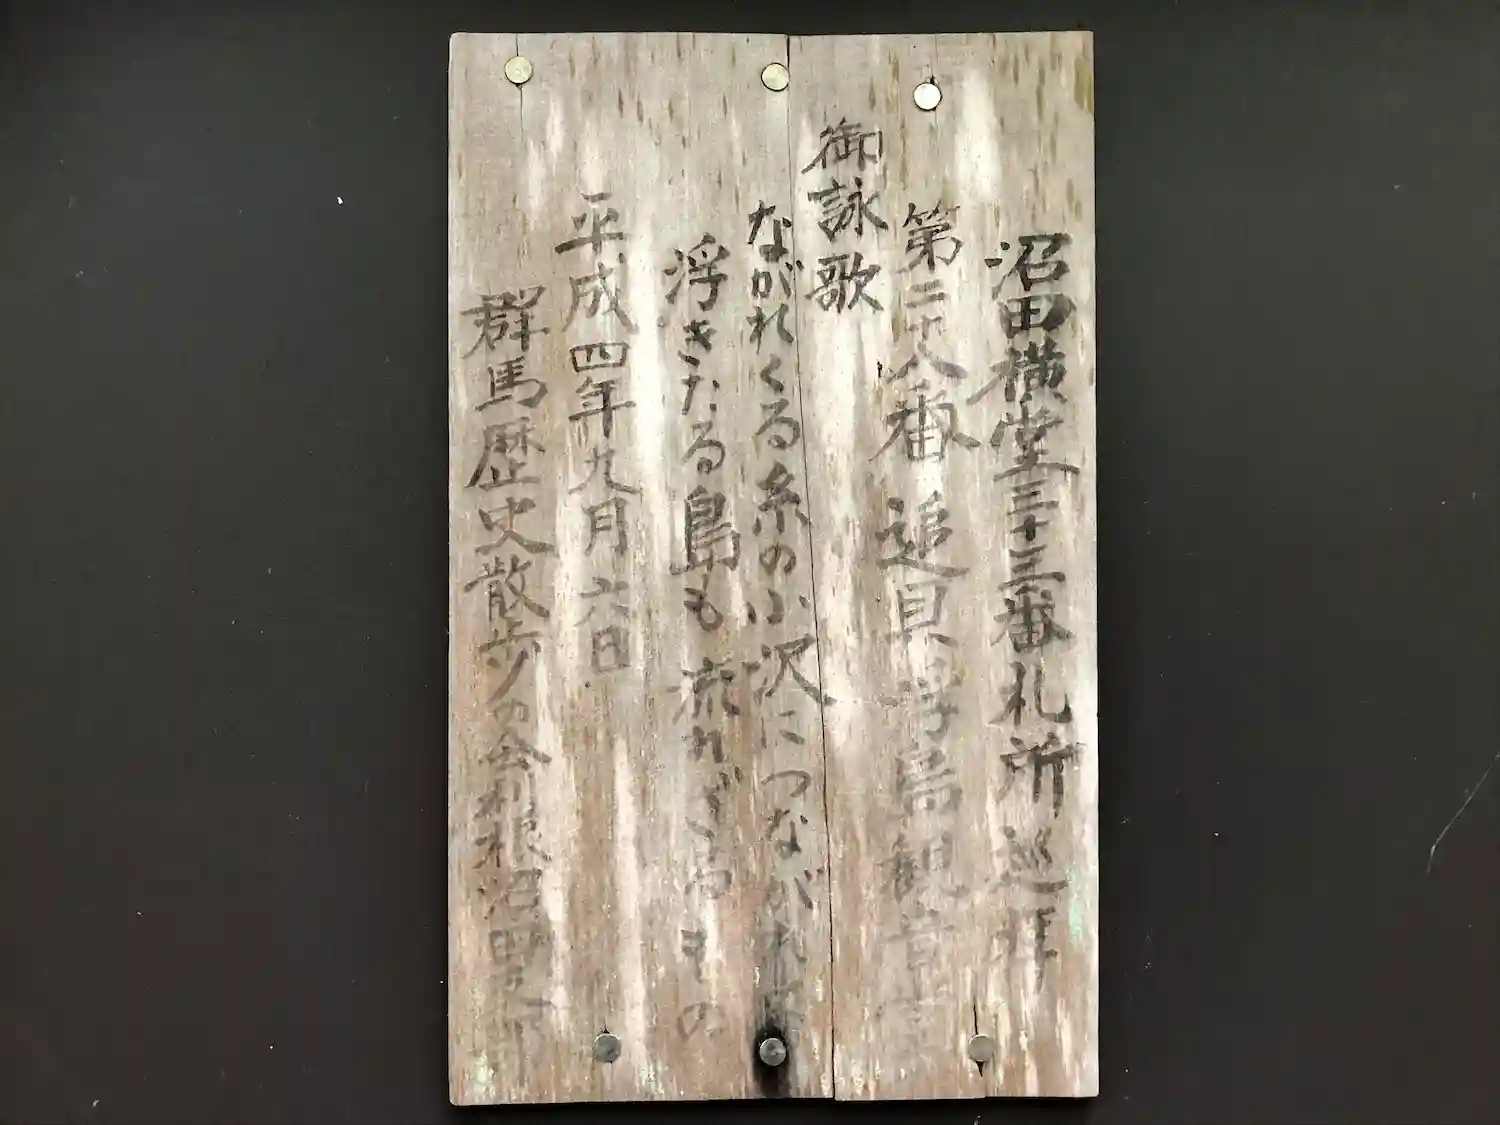 沼田横堂三十三番札所巡拝
第二十八番 追貝浮島観音堂
御詠歌
ながれくる糸の小沢につながれて
浮きたる島も流れざるもの
平成四年九月六日
群馬歴史散歩の会利根沼田支部